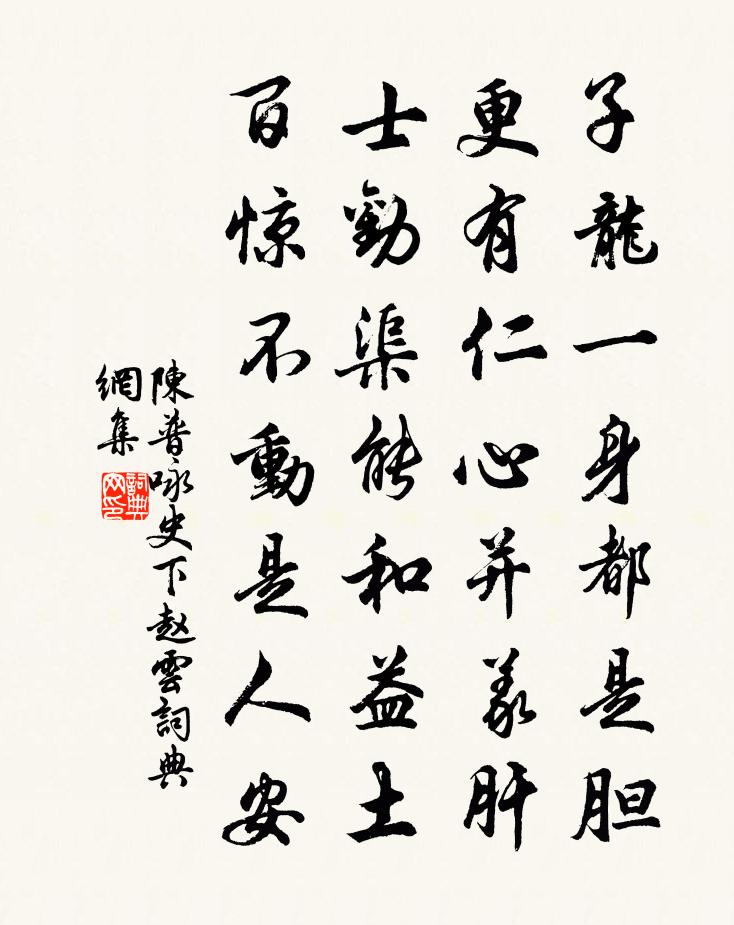 子龍一身都是胆
更有仁心并義肝
士勸渠能和益土
百惊不動是人安
陳普咏史下赵雲詞典
網集
詞典
网印